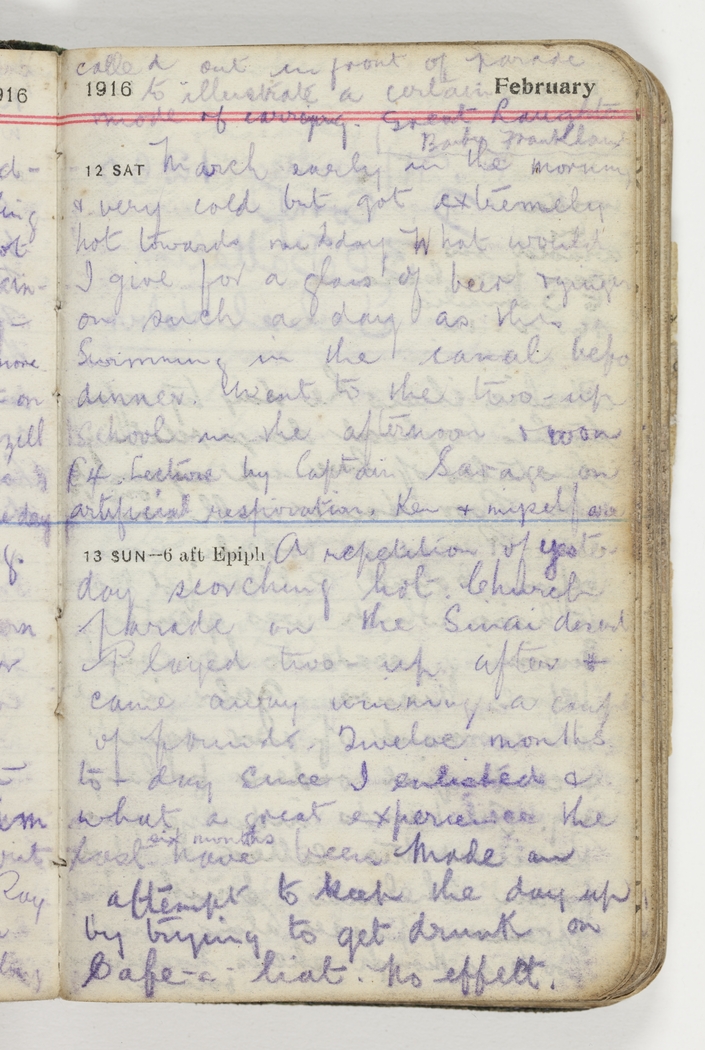 called out in front of parade
1916 to illustrate a certain February
mode of carrying. Great laughter
12 SAT March early in the morning
& very cold but got extremely
hot towards midday What would
I give for a glass of beer
on such a day as this.
Swimming in the canal befo
dinner. Went to the two-up
school in the afternoon & won
£4. Lecture by Captain Savage on
artificial respiration. Ken & myself are
13 SUN—6 aft Epiph A repetition of yester
day scorching hot. Church
parade on the Sinai desert
Played two-up after &
came away winning a coup
of pounds. Twelve months
to-day since I enlisted &
what a great experience the
six months
last have been Made an
attempt to keep the day up
by trying to get drunk on
Cafe-a-liat. No effect.